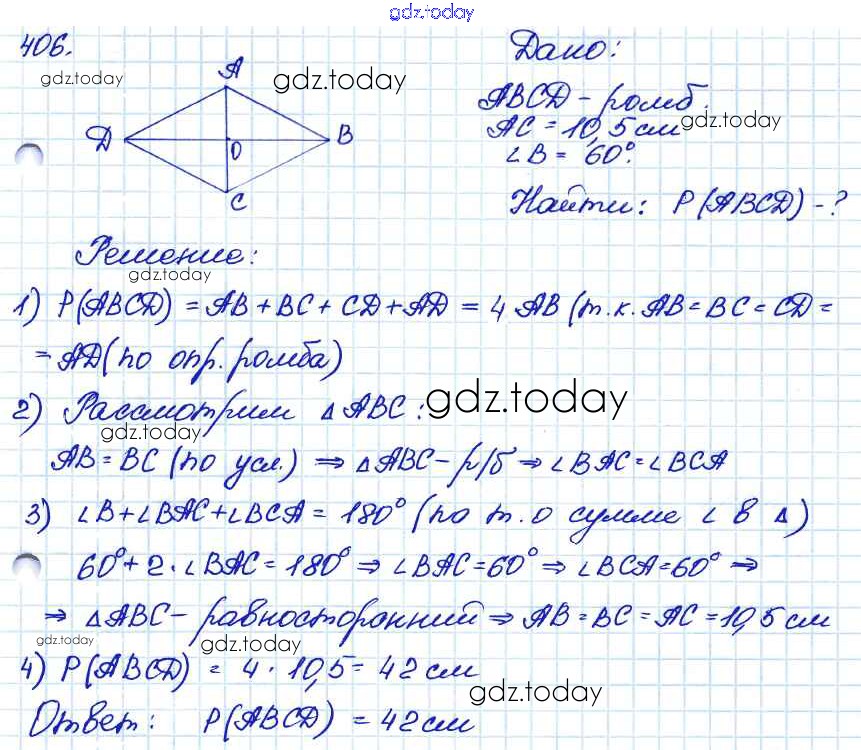 gdz.today
406.
Дано:
gdz.today
A
gdz.today
ABCD - ромб.
AC = 10,5 см
gdz.today
D
O
B
∠B = 60°.
C
Найти: P(ABCD) - ?
Решение:
gdz.today
1) P(ABCD) = AB + BC + CD + AD = 4 AB (т.к. AB = BC = CD =
= AD (по опр. ромба)
gdz.today
2) Рассмотрим △ABC:
gdz.today
AB = BC (по усл.) ⇒ △ABC - р/б ⇒ ∠BAC = ∠BCA
3) ∠B + ∠BAC + ∠BCA = 180° (по т. о сумме ∠ в △)
60° + 2 · ∠BAC = 180° ⇒ ∠BAC = 60° ⇒ ∠BCA = 60° ⇒
⇒ △ABC - равносторонний ⇒ AB = BC = AC = 10,5 см
gdz.today
gdz.today
4) P(ABCD) = 4 · 10,5 = 42 см
gdz.today
Ответ: P(ABCD) = 42 см